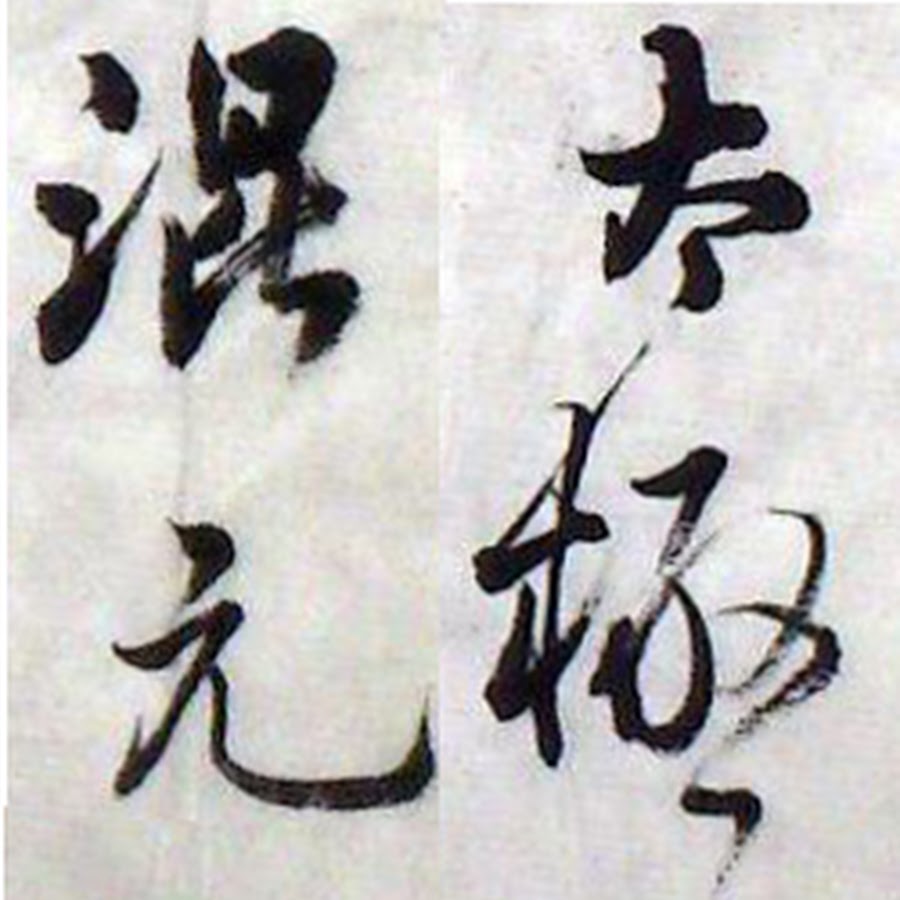 太極
混元